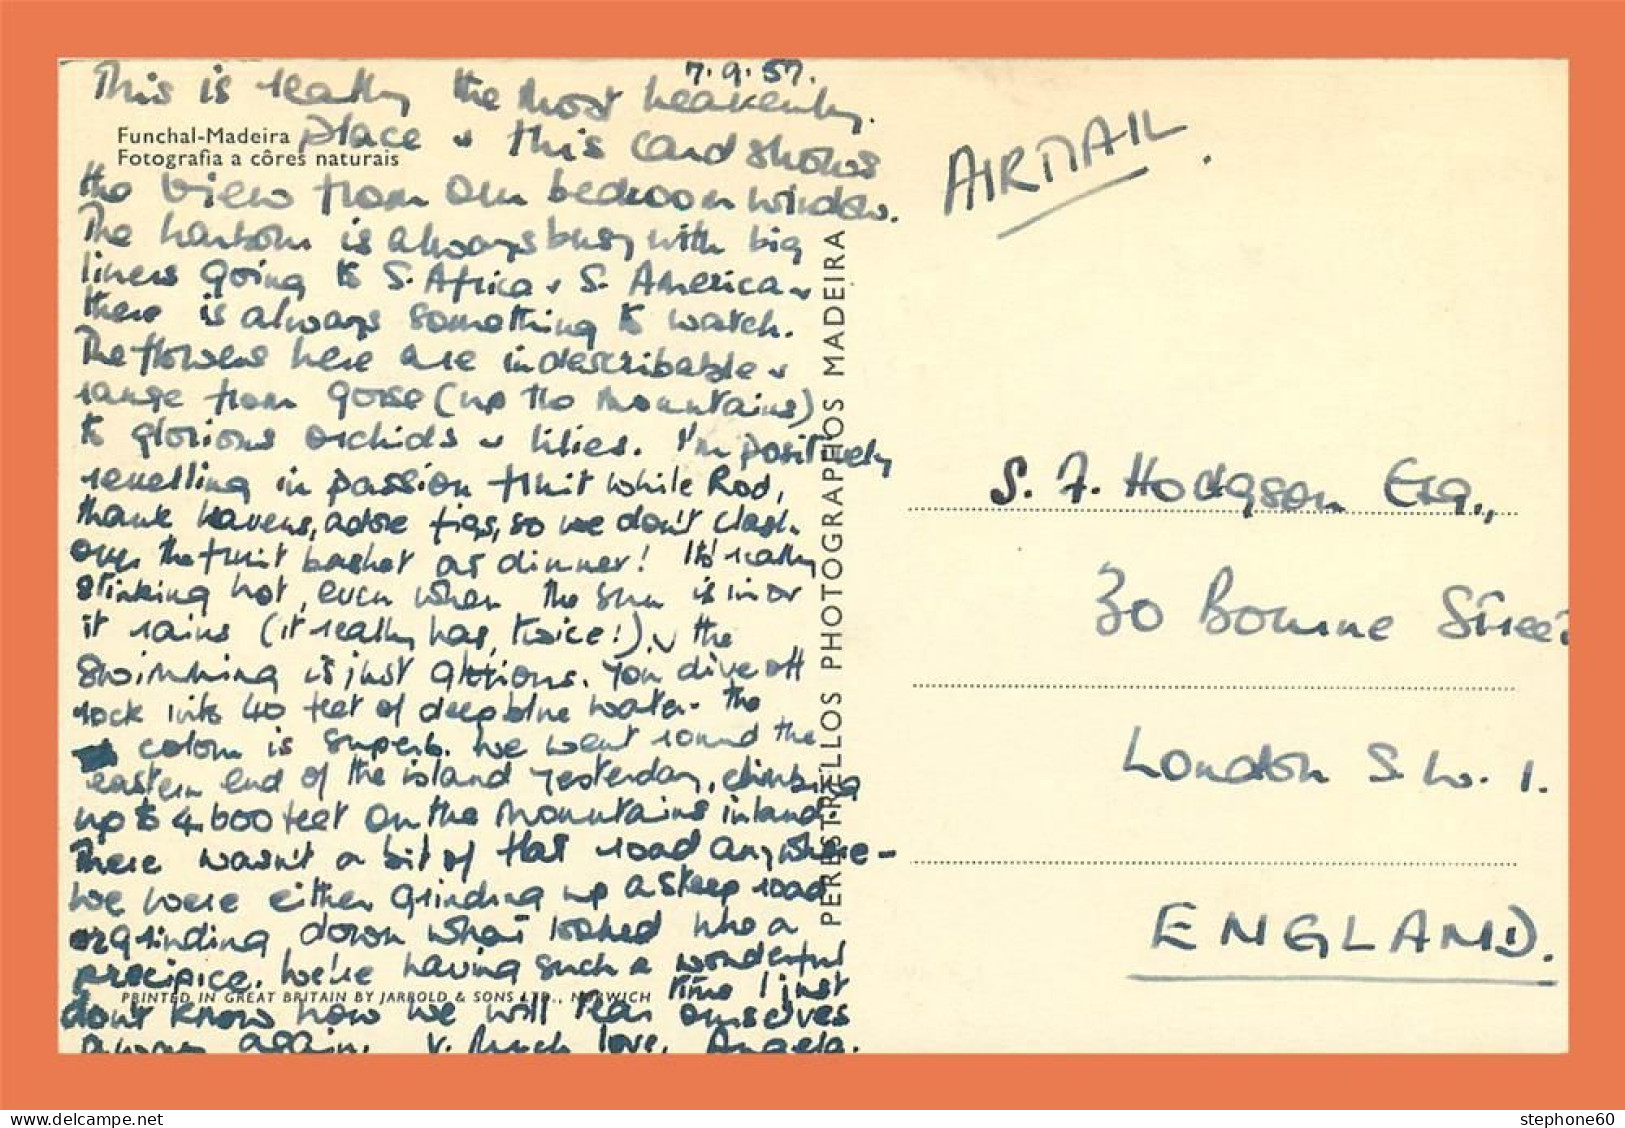 7.9.57.
This is really the most heavenly
Funchal-Madeira
Fotografia a côres naturais
place & this card shows
the view from our bedroom window.
The harbour is always busy with big
liners going to S. Africa & S. America &
there is always something to watch.
The flowers here are indescribable &
range from gorse (up the mountains)
to glorious orchids & lilies. I'm positively
revelling in passion fruit while Rod,
thank heavens, adore figs, so we don't clash
over the fruit basket at dinner! It's really
stinking hot, even when the sun is in or
it rains (it really has, twice!), & the
swimming is just glorious. You dive off
rock into 40 feet of deep blue water. The
colour is superb. We went round the
eastern end of the island yesterday, climbing
up to 4,600 feet on the mountains inland
There wasn't a bit of flat road anywhere -
we were either grinding up a steep road
or grinding down what looked like a
precipice. We're having such a wonderful
PRINTED IN GREAT BRITAIN BY JARROLD & SONS LTD., NORWICH
time I just
don't know how we will tear ourselves
away again. V. Much love, Angela.
PERESTRELLOS PHOTOGRAPHOS MADEIRA
AIRMAIL.
S. F. Hodgson Esq.,
30 Bourne Street
London S.W. 1.
ENGLAND.
stephone60